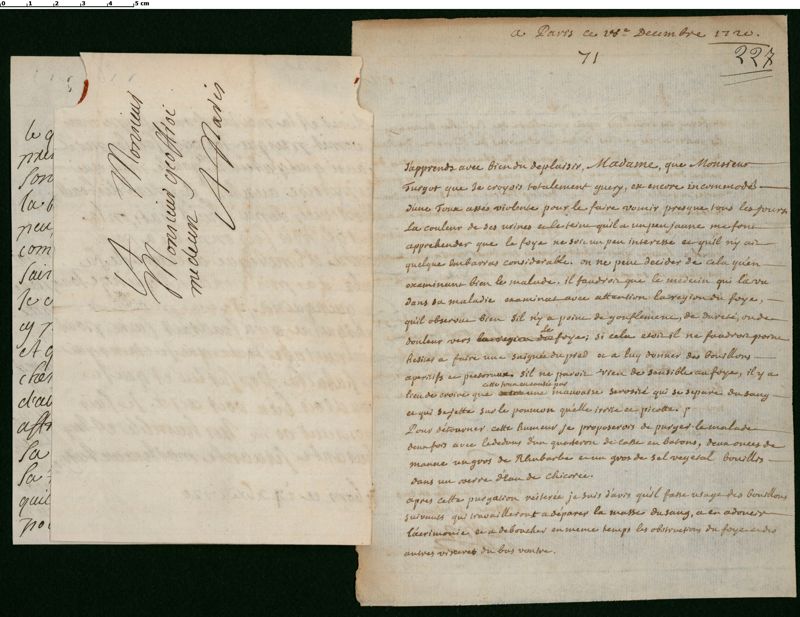 0 1 2 3 4 5 cm
le q
pres
son
la
peu
com
sai
le c
ay
et q
cher
d'au
affr
sa
sa
quil
po
A Monsieur
Monsieur geoffroi
medecin
A Paris
a Paris ce 28e Decembre 1720.
71
227
J'apprends avec bien du deplaisir, Madame, que Monsieur
Turgot que Je croyois totalement guery, est encore incommodé
d'une Toux assés violente pour le faire vomir presque tous les jours
La couleur de ses urines et le teint qu'il a un peu jaune me font
apprehender que le foye ne soit un peu interessé et qu'il n'y ait
quelque embarras considerable. on ne peut decider de cela qu'en
examinant bien le malade. il faudroit que le medecin qui l'a vu
dans sa maladie examinat avec attention la region du foye,
qu'il observat bien s'il n'y a point de gonflement, de dureté, ou de
douleur vers la region du le foye; si cela etoit il ne faudroit point
hesiter a faire une saignée du pied et a luy donner des bouillons
aperitifs et s'il ne paroit rien de sensible au foye, il y a
lieu de croire que cette toux est causée par une mauvaise serosité qui se separe du sang
et qui se jette sur le poumon qu'elle irrite et picotte.
Pour détourner cette humeur je proposerois de purger le malade
deux fois avec le dedans d'un quarteron de casse en batons, deux onces de
manne un gros de Rhubarbe et un gros de sel vegetal bouillis
dans un verre d'eau de chicorée.
apres cette purgation reiterée je suis d'avis qu'il fasse usage des bouillons
suivants qui travailleront a déparer la masse du sang, a en adoucir
l'acrimonie et a deboucher en meme temps les obstructions du foye et des
autres visceres du bas ventre.